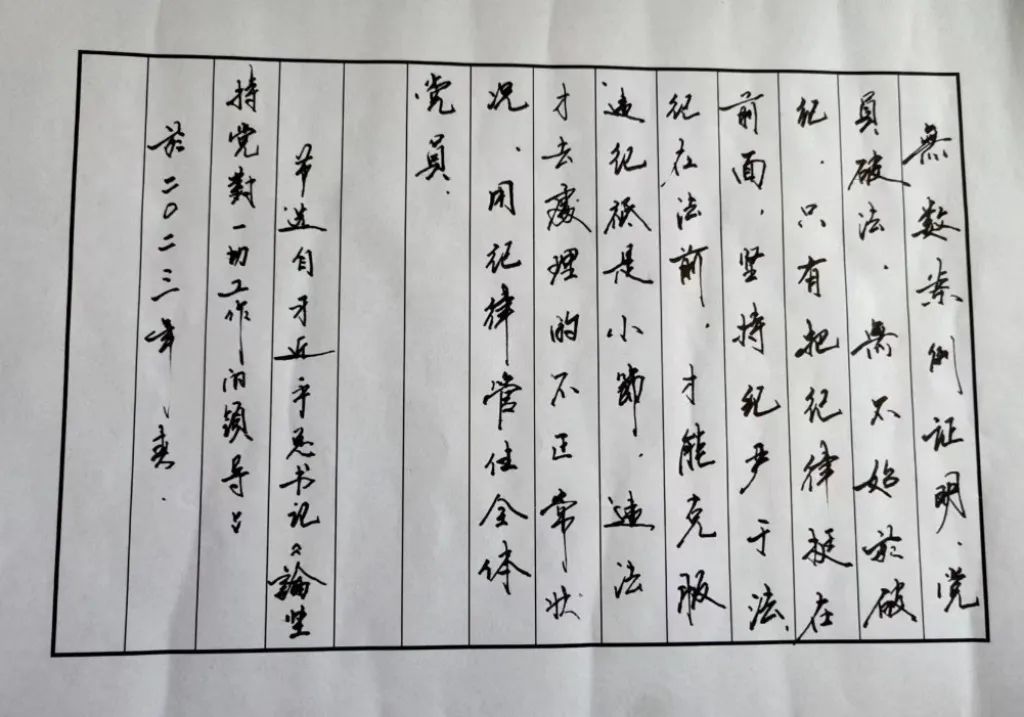 無数案例证明、党
員破法、無不始於破
纪、只有把纪律挺在
前面、坚持纪严于法、
纪在法前、才能克服
违纪祗是小節、违法
才去處理的不正常状
况、用纪律管住全体
党員、
节选自习近平总书记《論坚
持党對一切工作的领导》
於二〇二三年春、